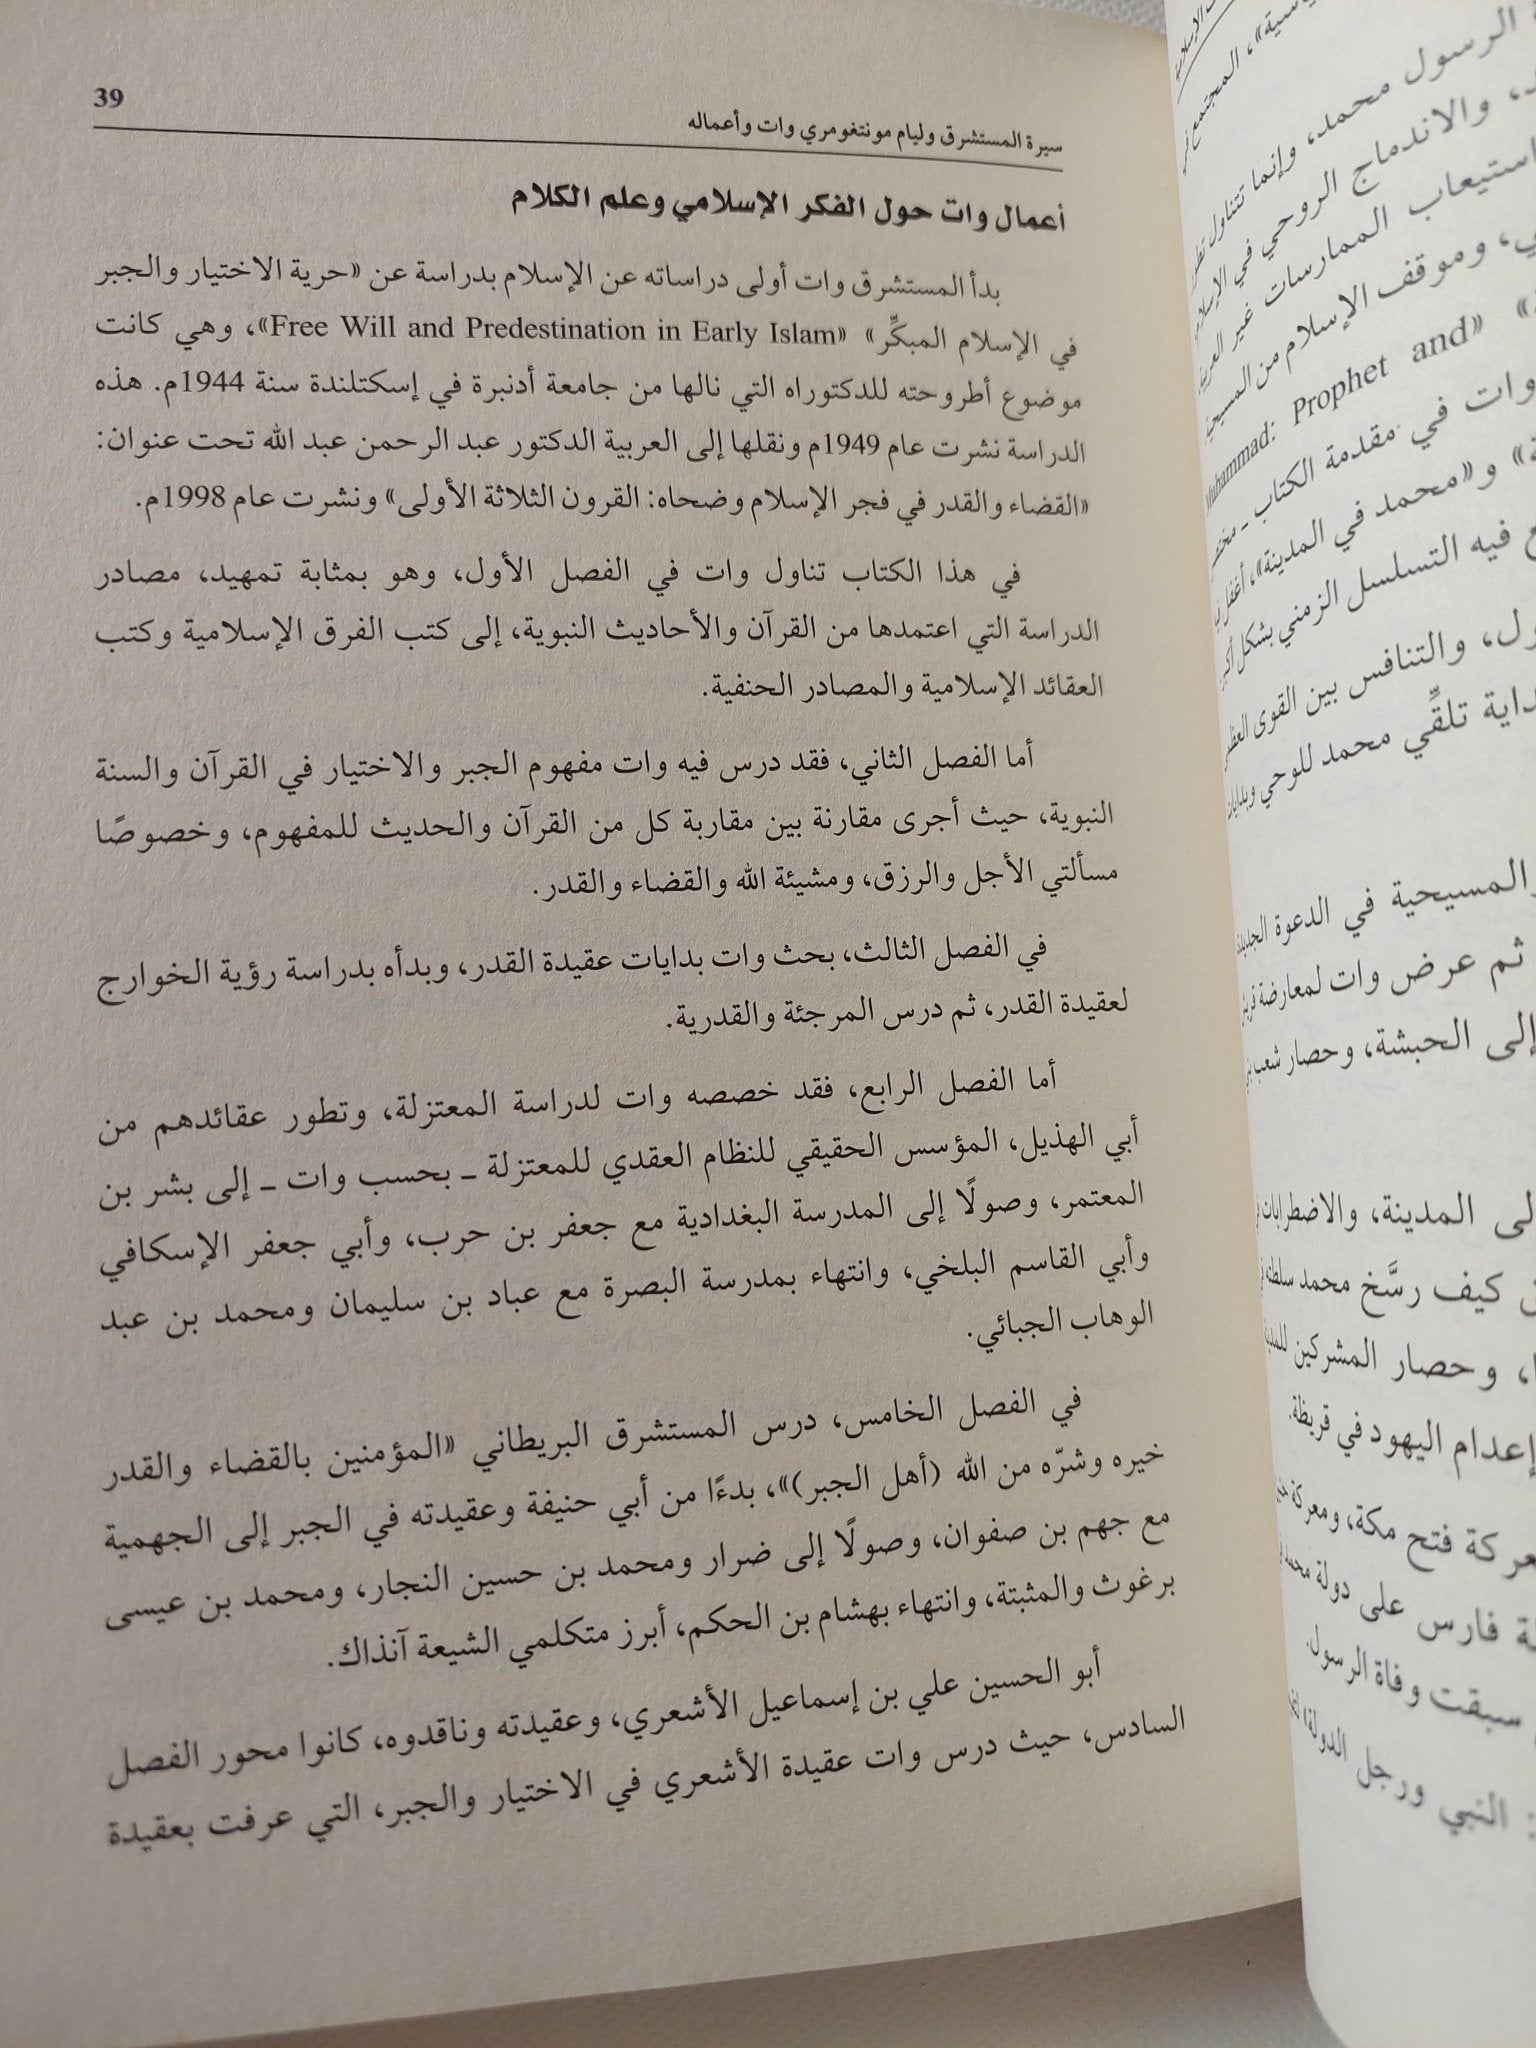 39
سيرة المستشرق وليام مونتغومري وات وأعماله
أعمال وات حول الفكر الإسلامي وعلم الكلام
بدأ المستشرق وات أولى دراساته عن الإسلام بدراسة عن «حرية الاختيار والجبر
في الإسلام المبكِّر» «Free Will and Predestination in Early Islam»، وهي كانت
موضوع أطروحته للدكتوراه التي نالها من جامعة أدنبرة في إسكتلندة سنة 1944م. هذه
الدراسة نشرت عام 1949م ونقلها إلى العربية الدكتور عبد الرحمن عبد الله تحت عنوان:
«القضاء والقدر في فجر الإسلام وضحاه: القرون الثلاثة الأولى» ونشرت عام 1998م.
في هذا الكتاب تناول وات في الفصل الأول، وهو بمثابة تمهيد، مصادر
الدراسة التي اعتمدها من القرآن والأحاديث النبوية، إلى كتب الفرق الإسلامية وكتب
العقائد الإسلامية والمصادر الحنفية.
أما الفصل الثاني، فقد درس فيه وات مفهوم الجبر والاختيار في القرآن والسنة
النبوية، حيث أجرى مقارنة بين مقاربة كل من القرآن والحديث للمفهوم، وخصوصًا
مسألتي الأجل والرزق، ومشيئة الله والقضاء والقدر.
في الفصل الثالث، بحث وات بدايات عقيدة القدر، وبدأه بدراسة رؤية الخوارج
لعقيدة القدر، ثم درس المرجئة والقدرية.
أما الفصل الرابع، فقد خصصه وات لدراسة المعتزلة، وتطور عقائدهم من
أبي الهذيل، المؤسس الحقيقي للنظام العقدي للمعتزلة ـ بحسب وات ـ إلى بشر بن
المعتمر، وصولًا إلى المدرسة البغدادية مع جعفر بن حرب، وأبي جعفر الإسكافي
وأبي القاسم البلخي، وانتهاء بمدرسة البصرة مع عباد بن سليمان ومحمد بن عبد
الوهاب الجبائي.
في الفصل الخامس، درس المستشرق البريطاني «المؤمنين بالقضاء والقدر
خيره وشرّه من الله (أهل الجبر)»، بدءًا من أبي حنيفة وعقيدته في الجبر إلى الجهمية
مع جهم بن صفوان، وصولًا إلى ضرار ومحمد بن حسين النجار، ومحمد بن عيسى
برغوث والمثبتة، وانتهاء بهشام بن الحكم، أبرز متكلمي الشيعة آنذاك.
أبو الحسين علي بن إسماعيل الأشعري، وعقيدته وناقدوه، كانوا محور الفصل
السادس، حيث درس وات عقيدة الأشعري في الاختيار والجبر، التي عرفت بعقيدة
الرسول محمد، وإنما تتناول
والاندماج الروحي في الإسلام
استيعاب الممارسات غير
وموقف الإسلام من
Prophet and»
وات في مقدمة الكتاب ـ
و«محمد في المدينة»، أغفل
فيه التسلسل الزمني بشكل
والتنافس بين القوى
تلقِّي محمد للوحي
والمسيحية في الدعوة الجديدة
ثم عرض وات لمعارضة
إلى الحبشة، وحصار شعب
المدينة، والاضطرابات
كيف رسَّخ محمد
وحصار المشركين
إعدام اليهود في قريظة.
فتح مكة، ومعركة
فارس على دولة محمد
سبقت وفاة الرسول.
النبي ورجل الدولة